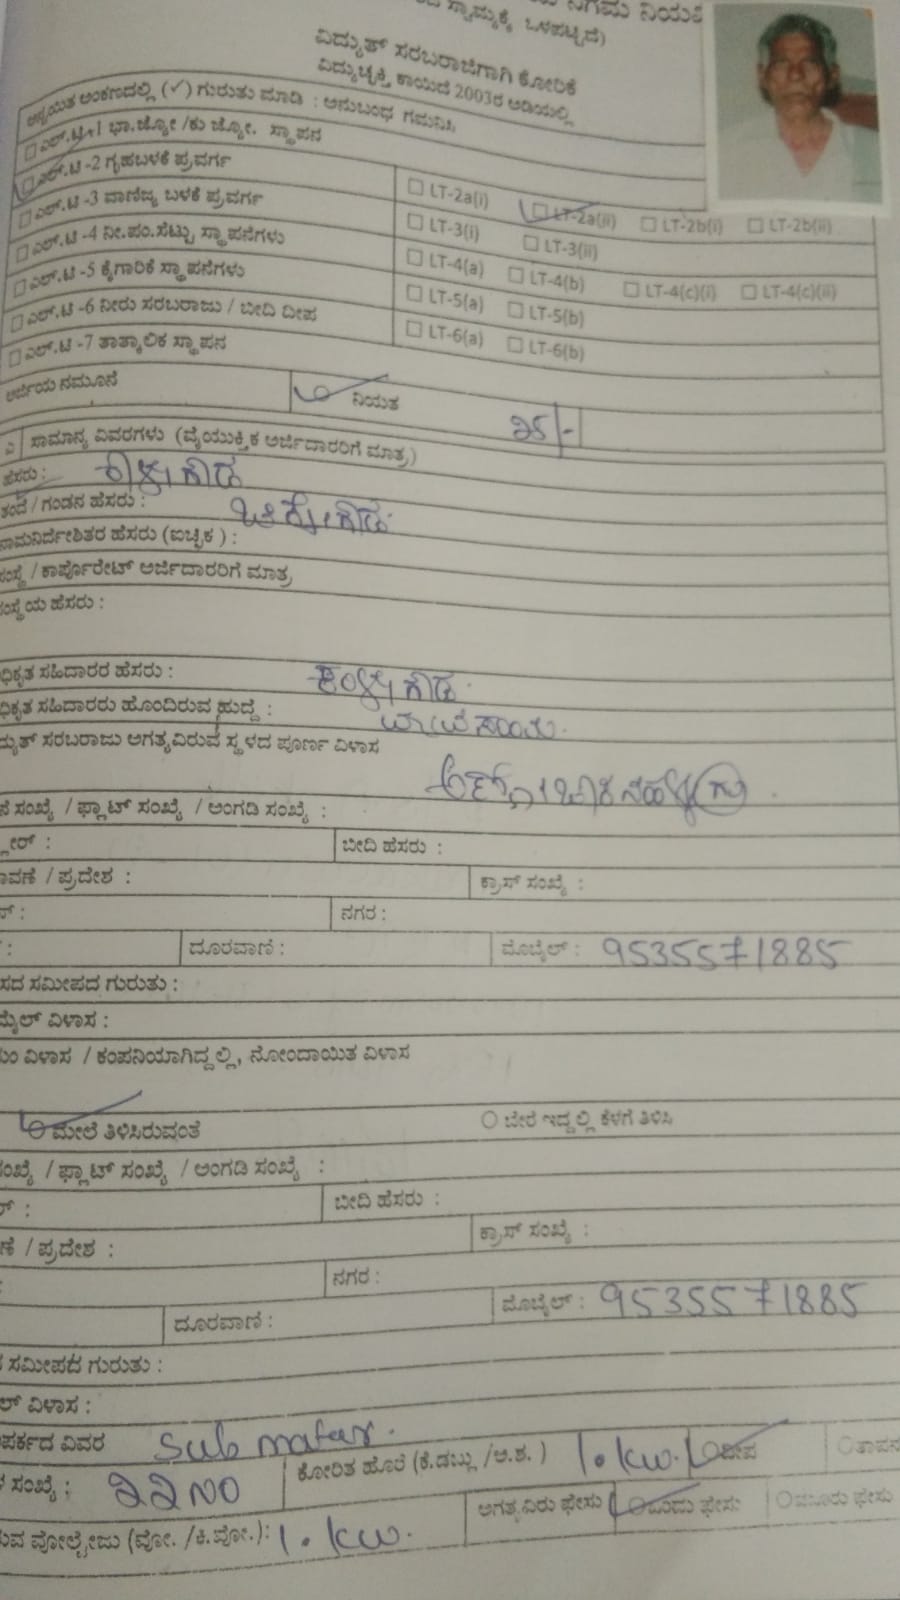 ವಿದ್ಯುತ್ ಸರಬರಾಜಿಗಾಗಿ ಕೋರಿಕೆ
ವಿದ್ಯುಚ್ಛಕ್ತಿ ಕಾಯಿದೆ 2003ರ ಅಡಿಯಲ್ಲಿ
ಅನ್ವಯಿತ ಅಂಕಣದಲ್ಲಿ (✓) ಗುರುತು ಮಾಡಿ : ಅನುಬಂಧ ಗಮನಿಸಿ
ಎಲ್.ಟಿ-1 ಭಾ.ಜ್ಯೋ /ಕು ಜ್ಯೋ. ಸ್ಥಾಪನ
ಎಲ್.ಟಿ -2 ಗೃಹಬಳಕೆ ಪ್ರವರ್ಗ LT-2a(i) LT-2a(ii) LT-2b(i) LT-2b(ii)
ಎಲ್.ಟಿ -3 ವಾಣಿಜ್ಯ ಬಳಕೆ ಪ್ರವರ್ಗ LT-3(i) LT-3(ii)
ಎಲ್.ಟಿ -4 ನೀ.ಪಂ.ಸೆಟ್ಟು ಸ್ಥಾಪನೆಗಳು LT-4(a) LT-4(b) LT-4(c)(i) LT-4(c)(ii)
ಎಲ್.ಟಿ -5 ಕೈಗಾರಿಕೆ ಸ್ಥಾಪನೆಗಳು LT-5(a) LT-5(b)
ಎಲ್.ಟಿ -6 ನೀರು ಸರಬರಾಜು / ಬೀದಿ ದೀಪ LT-6(a) LT-6(b)
ಎಲ್.ಟಿ -7 ತಾತ್ಕಾಲಿಕ ಸ್ಥಾಪನ
ಅರ್ಜಿಯ ನಮೂನೆ ನಿಯತ
ಎ ಸಾಮಾನ್ಯ ವಿವರಗಳು (ವೈಯುಕ್ತಿಕ ಅರ್ಜಿದಾರರಿಗೆ ಮಾತ್ರ)
ಹೆಸರು :
ತಂದೆ / ಗಂಡನ ಹೆಸರು :
ನಾಮನಿರ್ದೇಶಿತರ ಹೆಸರು (ಐಚ್ಛಿಕ ) :
ಸಂಸ್ಥೆ / ಕಾರ್ಪೊರೇಟ್ ಅರ್ಜಿದಾರರಿಗೆ ಮಾತ್ರ
ಸಂಸ್ಥೆಯ ಹೆಸರು :
ಧಿಕೃತ ಸಹಿದಾರರ ಹೆಸರು :
ಧಿಕೃತ ಸಹಿದಾರರು ಹೊಂದಿರುವ ಹುದ್ದೆ :
ದ್ಯುತ್ ಸರಬರಾಜು ಅಗತ್ಯವಿರುವ ಸ್ಥಳದ ಪೂರ್ಣ ವಿಳಾಸ
ನೆ ಸಂಖ್ಯೆ / ಫ್ಲಾಟ್ ಸಂಖ್ಯೆ / ಅಂಗಡಿ ಸಂಖ್ಯೆ :
ಬೀದಿ ಹೆಸರು :
ಾವಣೆ / ಪ್ರದೇಶ : ಕ್ರಾಸ್ ಸಂಖ್ಯೆ :
ನಗರ :
ದೂರವಾಣಿ : ಮೊಬೈಲ್ : 9535571885
ಸದ ಸಮೀಪದ ಗುರುತು :
ಮೈಲ್ ವಿಳಾಸ :
ವಿಳಾಸ / ಕಂಪನಿಯಾಗಿದ್ದಲ್ಲಿ, ನೋಂದಾಯಿತ ವಿಳಾಸ
ಮೇಲೆ ತಿಳಿಸಿರುವಂತೆ ಬೇರೆ ಇದ್ದಲ್ಲಿ ಕೆಳಗೆ ತಿಳಿಸಿ
ಸಂಖ್ಯೆ / ಫ್ಲಾಟ್ ಸಂಖ್ಯೆ / ಅಂಗಡಿ ಸಂಖ್ಯೆ :
ಬೀದಿ ಹೆಸರು :
ಣೆ / ಪ್ರದೇಶ : ಕ್ರಾಸ್ ಸಂಖ್ಯೆ :
ನಗರ :
ದೂರವಾಣಿ : ಮೊಬೈಲ್ : 9535571885
ಸಮೀಪದ ಗುರುತು :
ಲ್ ವಿಳಾಸ :
ಪರ್ಕದ ವಿವರ Sub matar.
ಸಂಖ್ಯೆ : ಕೋರಿತ ಹೊರೆ (ಕೆ.ಡಬ್ಲ್ಯು /ಅ.ಶ. ) 1.kw. ದೀಪ ತಾಪನ
ಅಗತ್ಯವಿರು ಫೇಸು ಒಂದು ಫೇಸು ಮೂರು ಫೇಸು
ರುವ ವೋಲ್ಟೇಜು (ವೋ. /ಕಿ.ವೋ.): 1.kw.